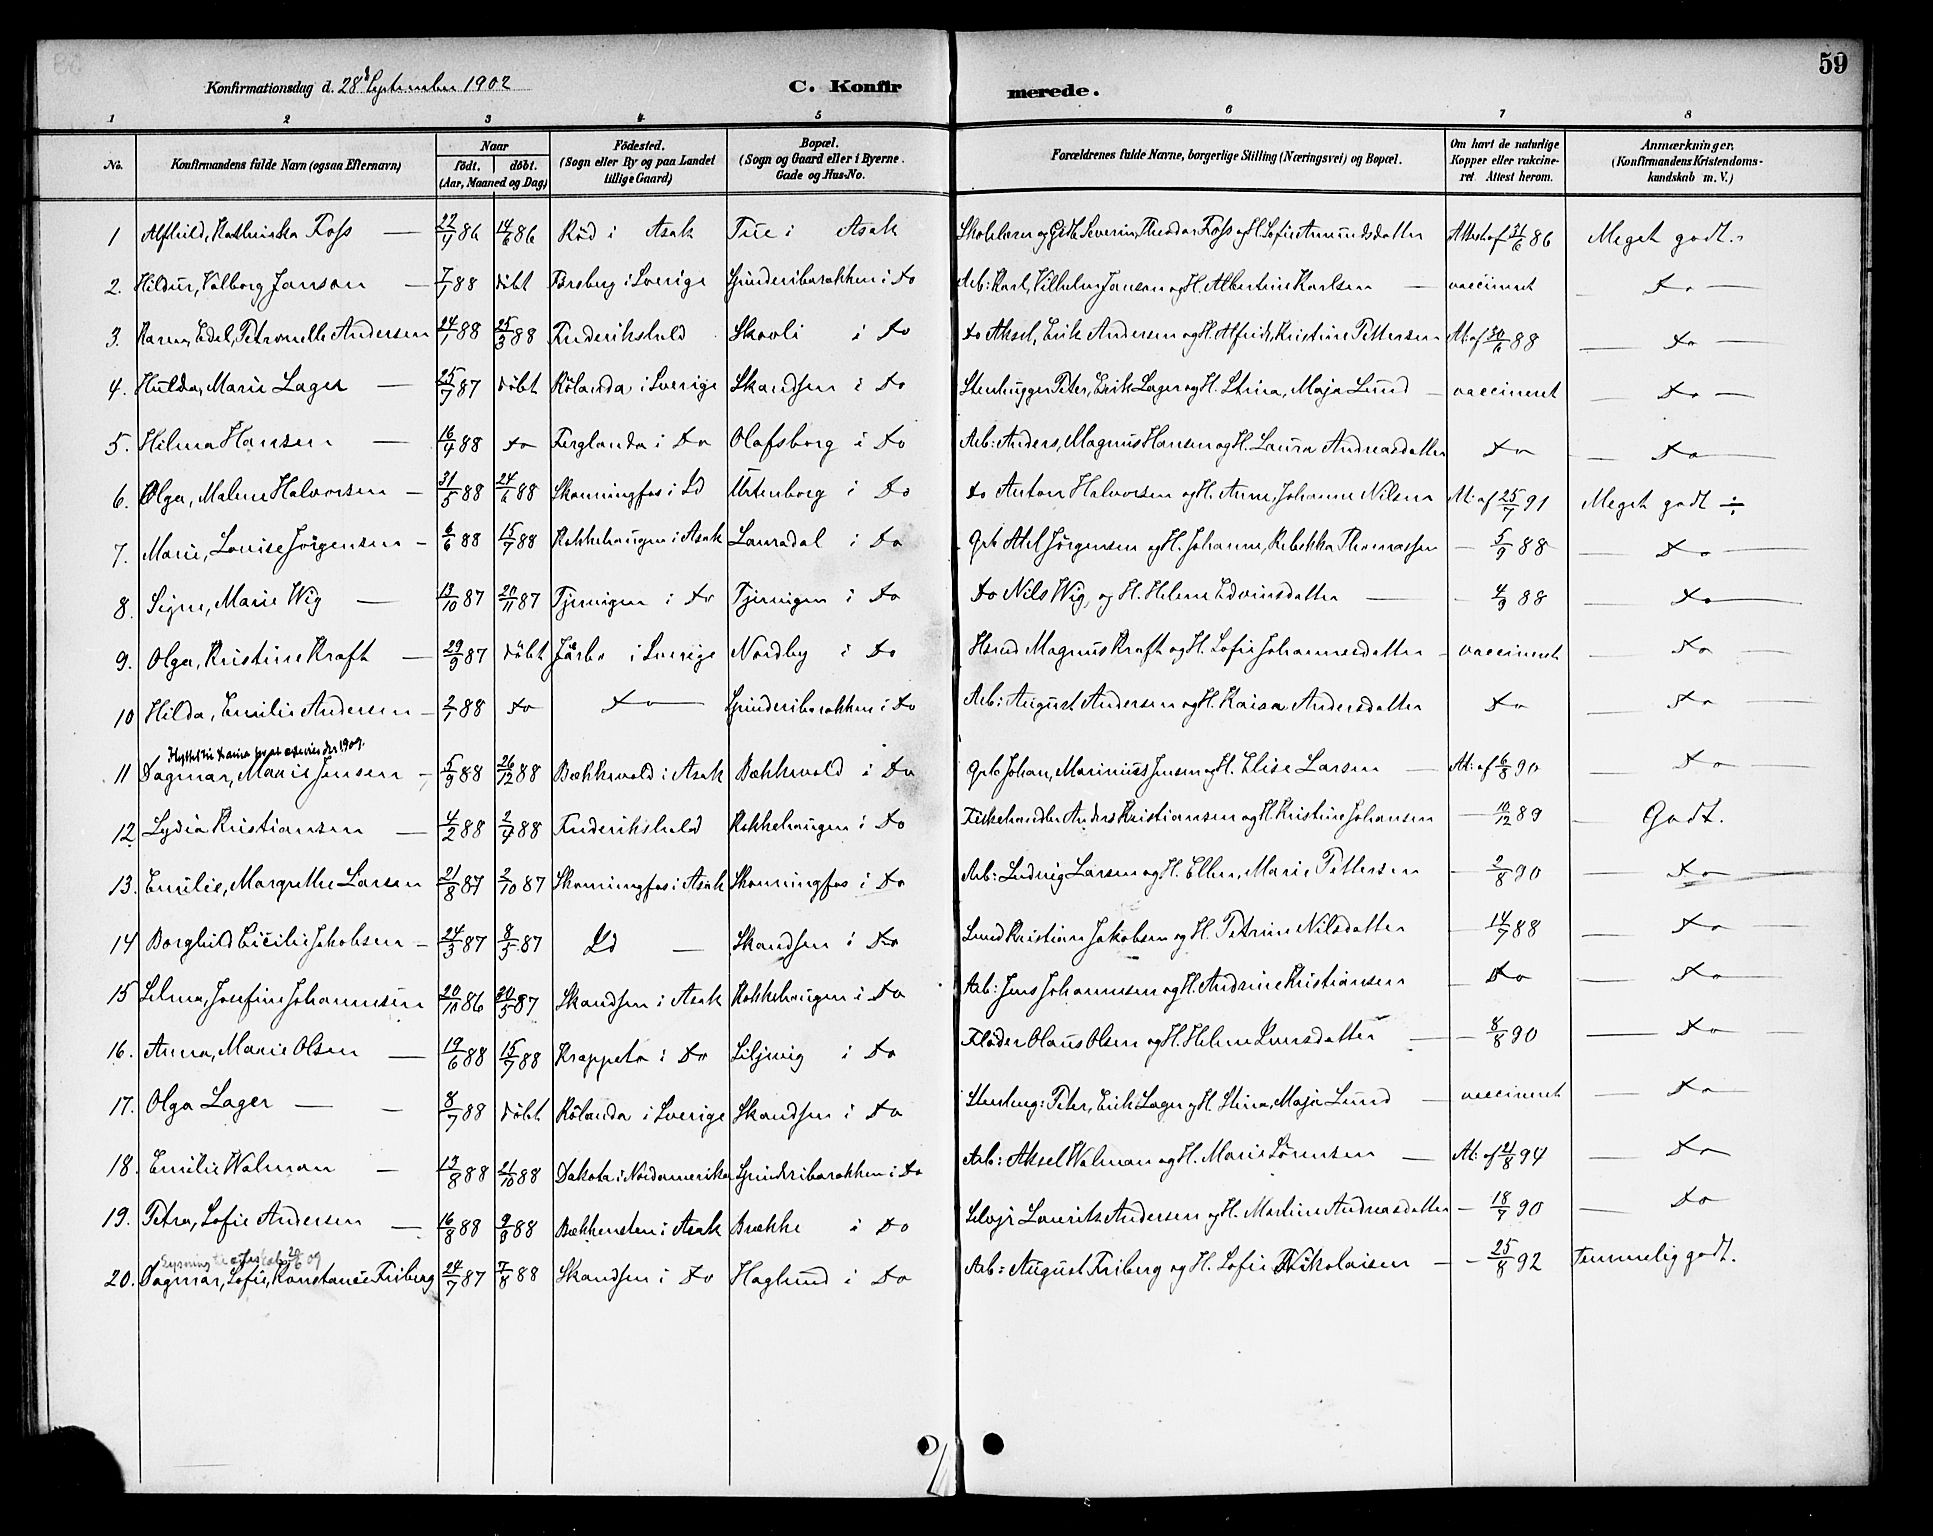 59
Konfirmationsdag d. 28d September 1902 C. Konfirmerede.
1 2 3 4 5 6 7 8
No. Konfirmandens fulde Navn (ogsaa Efternavn) Naar født. døbt. (Aar, Maaned og Dag) Födested. (Sogn eller By og paa Landet tillige Gaard) Bopæl. (Sogn og Gaard eller i Byerne. Gade og Hus-No. Forældrenes fulde Navne, borgerlige Stilling (Næringsvei) og Bopæl. Om havt de naturlige Kopper eller vakcineret Attest herom. Anmærkninger. (Konfirmandens Kristendomskundskab m. V.)
1 Alfhild, Kathinka Foss — 22/4 86 14/6 86 Röd i Asak Tue i Asak Skolelærer og Gbr Severin, Theodor Foss og H. Sofie Amundsdatter Attest af 21/6 86 Meget godt.
2. Hildur, Valborg Janson — 7/1 88 döbt Torsberg i Sverige Spinderibarakken i do Arb: Karl, Vilhelm Janson og H. Albertine Karlsen — vaccineret — do —
3. Karen, Edel, Petronelle Andersen 24/1 88 25/3 88 Frederikshald Skovli i do do Aksel, Erik Andersen og H. Alfrida, Kristine Pettersen At: af 30/6 88 — do —
4. Hulda, Marie Lager — 25/7 87 döbt Rölanda i Sverige Skandsen i do Stenhugger Peter, Erik Lager og H. Stina, Maja Lund — vaccineret — do —
5. Hilma Hansen — 16/4 88 do Ferglanda i do Olafsborg i do Arb: Anders, Magnus Hansen og H. Laura Andreasdatter do — do —
6. Olga, Malene Halvorsen — 31/5 88 24/6 88 Skonningfos i Id Urtenborg i do do Anton Halvorsen og H. Anne, Johanne Nilsen At: af 25/7 91 Meget godt ÷
7. Marie, Louise Jörgensen — 6/6 88 15/7 88 Rokkehaugen i Asak Lauradal i do Gbr Axel Jörgensen og H. Johanne, Rebekka Thomassen — 5/9 88 — do —
8. Signe, Marie Wig — 13/10 87 20/11 87 Tjernigen i do Tjernigen i do do Nils Wig, og H. Helene Edvinsdatter — — 4/9 88 — do —
9. Olga, Kristine Kraft — 29/9 87 döbt Järbo i Sverige Nordby i do Magnus Kraft og H. Sofie Johannesdatter — vaccineret — do —
10 Hilda, Emilie Andersen — 2/1 88 do — do — Spinderibarakken i do Arb: August Andersen og H. Kaisa Andersdatter do — do —
1909.
11 Dagmar, Marie Jensen — 5/9 88 26/12 88 Bækkevold i Asak Bækkevold i do Gbr Johan, Marinius Jensen og H. Elise Larsen — At: af 6/8 90 — do —
12 Lydia Kristiansen — 4/2 88 2/4 88 Frederikshald Rokkehaugen i do Fiskehandler Anders Kristiansen og H. Kristine Johansen — 10/12 89 — Godt.
13. Emilie, Margrethe Larsen 21/8 87 2/10 87 Skonningfos i Asak Skonningfos i do Arb: Ludvig Larsen og H. Ellen, Marie Pettersen — 2/8 90 — do —
14 Borghild Cicilie Jakobsen — 24/3 87 8/5 87 Id — Skandsen i do Smed Kristian Jakobsen og H. Petrine Nilsdatter — 14/7 88 — do —
15 Selma, Josefine Johannesen 20/10 86 20/5 87 Skandsen i Asak Rokkehaugen i do Arb: Jens Johannesen og H. Andrine Kristiansen — do — do —
16. Anna, Marie Olsen — 19/6 88 15/7 88 Krappeto i do Liljevig i do Flöder Olaus Olsen og H. Helene Svensdatter — — 8/8 90 — do —
17. Olga Lager — — 8/7 88 döbt Rölanda i Sverige Skandsen i do Stenhug: Peter, Erik Lager og H. Stina, Maja Lund — vaccineret — do —
18. Emilie Walman — 13/8 88 21/10 88 Dakota i Nordamerika Spinderibarakken i do Arb: Aksel Walman og H. Marie Sörensen — At: af 21/8 94 — do
19. Petra, Sofie Andersen — 16/8 88 9/9 88 Bækkenesten i Asak Brække i do Selvejr Laurits Andersen og H. Martine Andreasdatter — 18/7 90 — do
Lysning til ægteskab 20/6 09
20. Dagmar, Sofie, Konstance Friberg 24/7 87 7/8 88 Skandsen i do Haglund i do Arb: August Friberg og H. Sofie Nikolaisen — — 25/8 92 Temmelig godt.